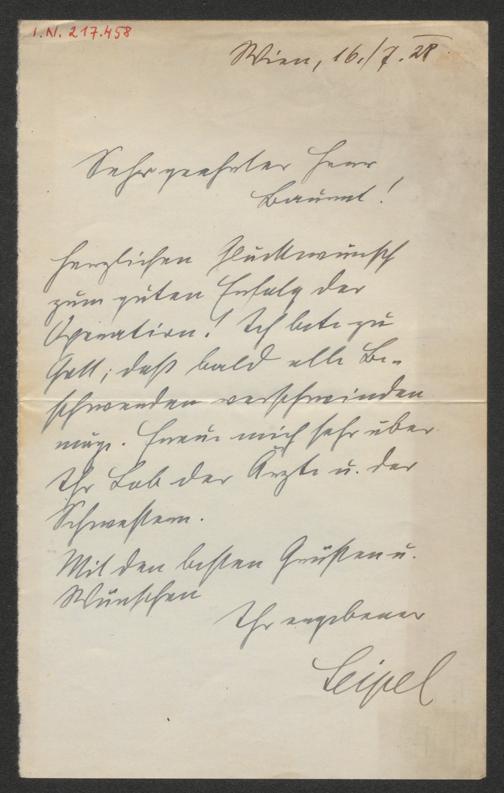 I.N. 217.458
Wien, 16./7. 28
Sehr geehrter Herr
Baurat!
Herzlichen Glückwunsch
zum guten Erfolg der
Operation! Ich bete zu
Gott, daß bald alle Be-
schwerden verschwinden
mög. Freue mich sehr über
Ihr Lob der Ärzte u. der
Schwestern.
Mit den besten Grüßen u.
Wünschen
Ihr ergebener
Seipel